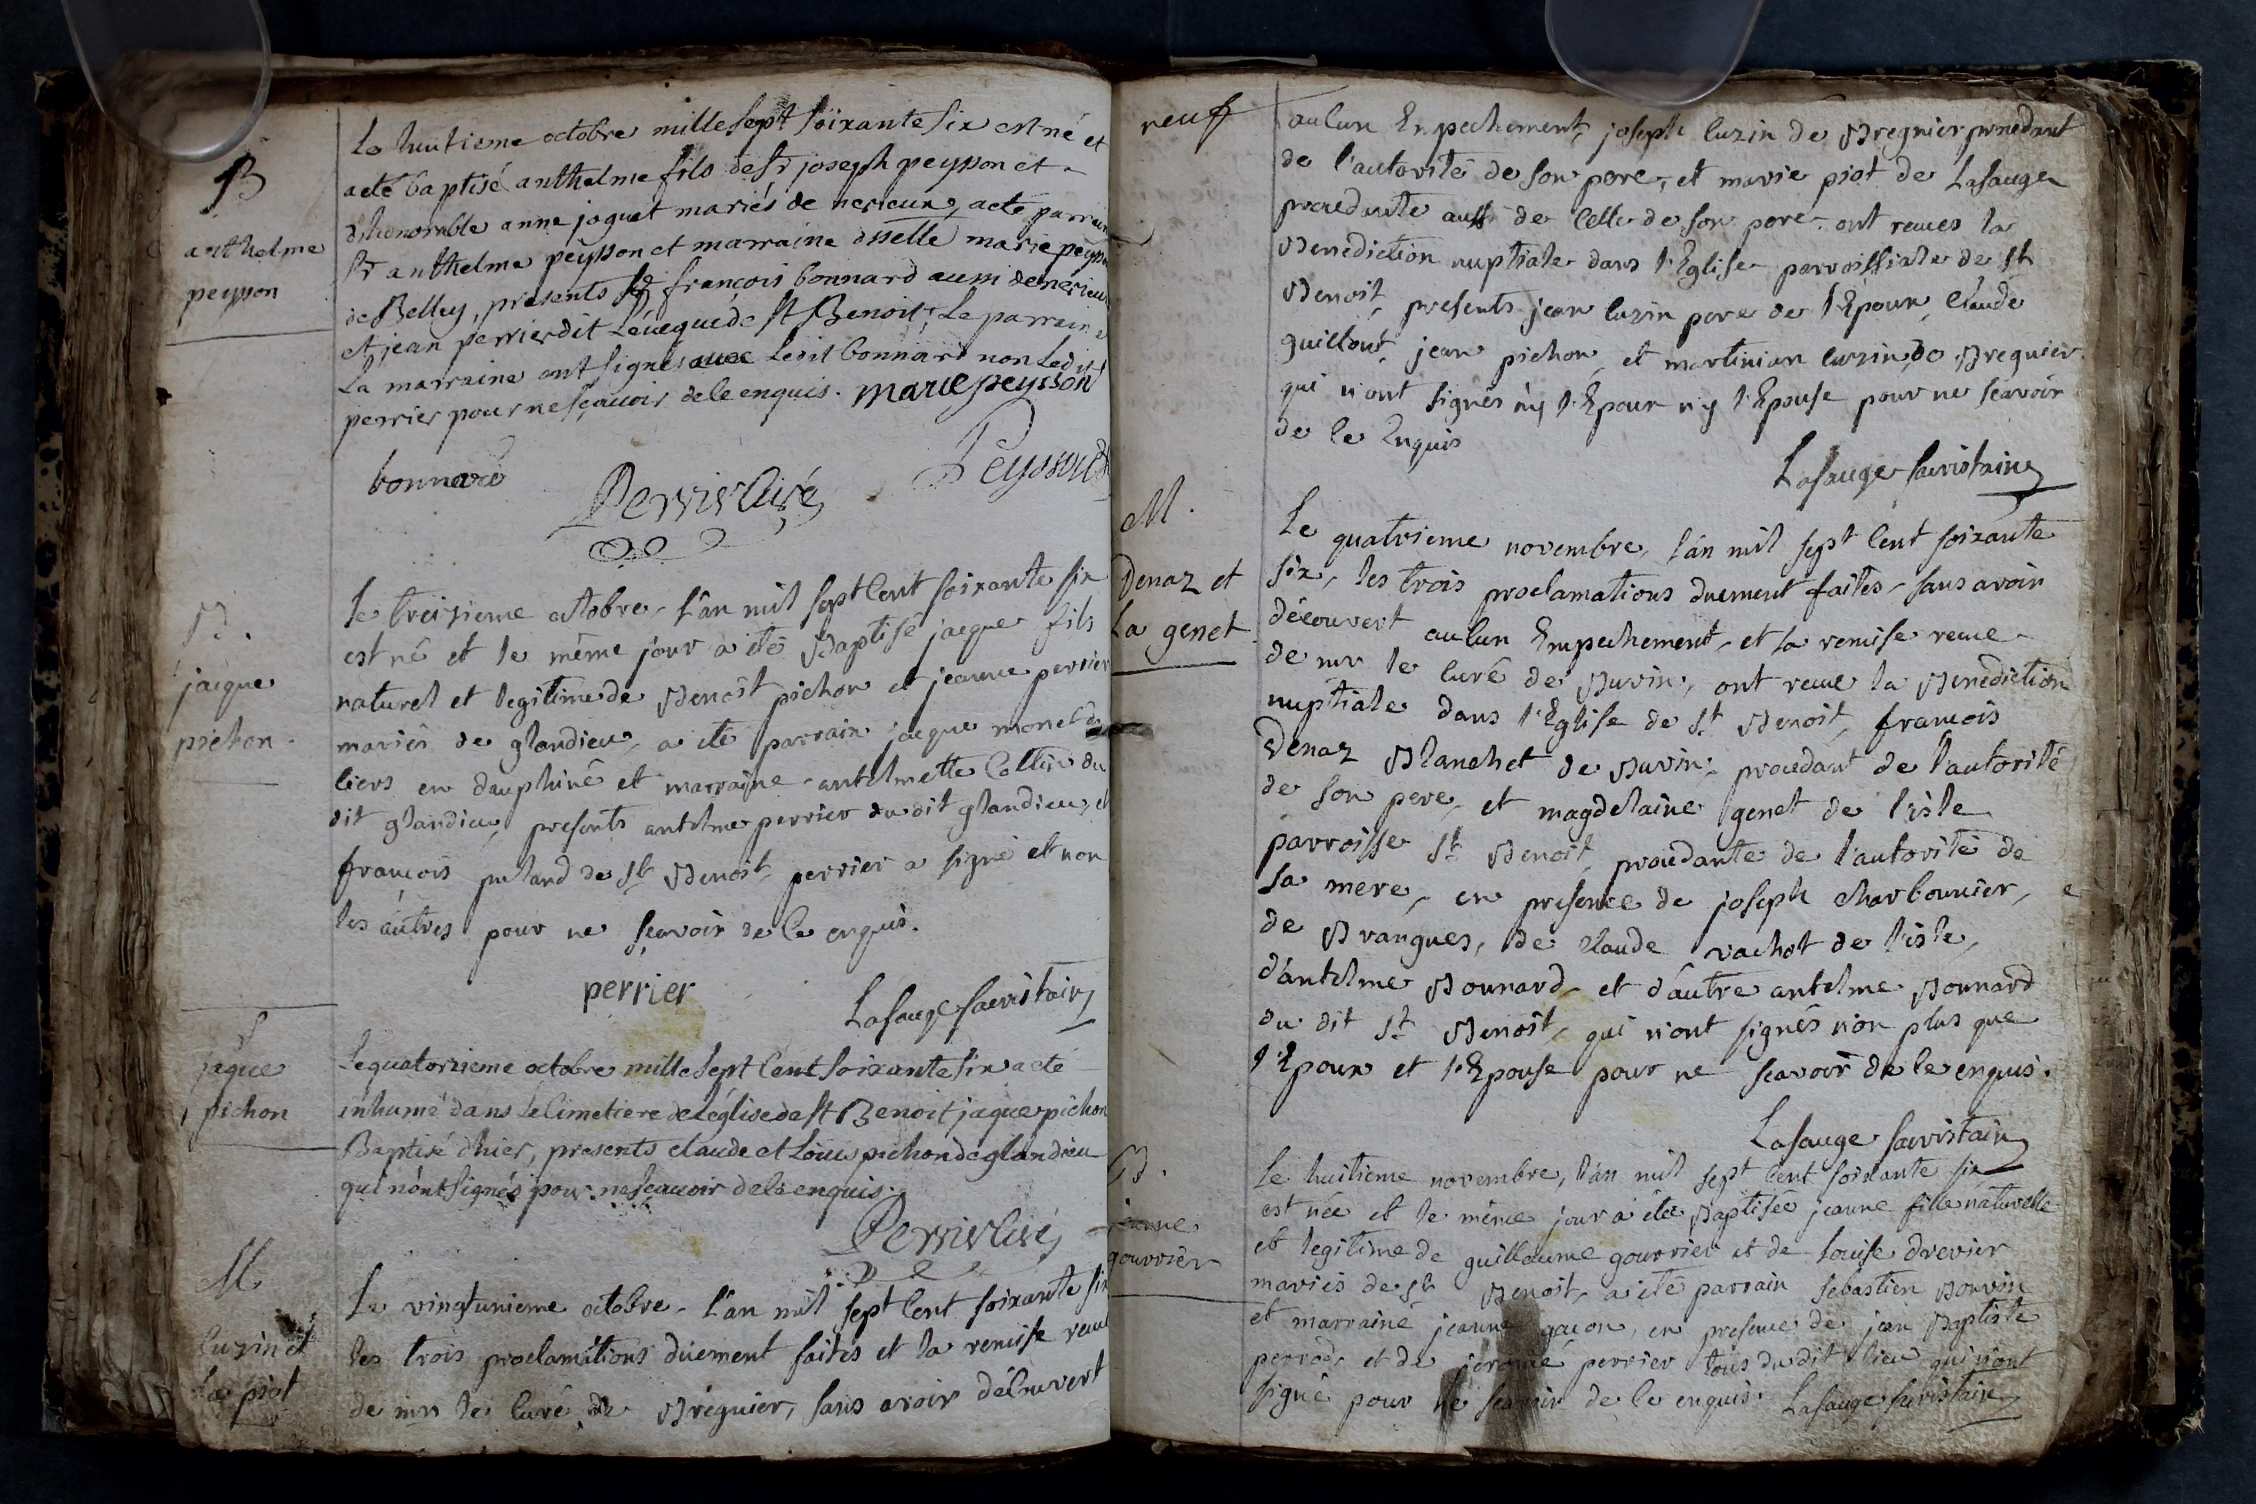 B
anthelme
peysson
Le huitieme octobre mille sept soixante six est né et
a eté baptisé anthelme fils de sr joseph peysson et
d'honorable anne joguet mariés de nerieux, a eté parrain
sr anthelme peysson et marraine dsselle marie peysson
de Belley, presents françois bonnard aussi de nerieux
et jean perrier dit Léveque de st Benoit, Le parrain et
La marraine ont signés avec Ledit bonnard non Ledit
perrier pour ne sçauoir de le enquis. marie peysson
bonnard
Perrier Curé
Peysson
B.
jacque
pichon.
le treizieme octobre, l'an mil sept cent soixante six
est né et le même jour a été Baptisé jacque fils
naturel et legitime de Benoît pichon et jeanne perrier
mariés de glandieu, a été parrain jacque monet de
liers en dauphiné et marraine antelmette Collin du
dit glandieu, presents antelme perrier du dit glandieu, et
françois juland de st Benoit, perrier a signé et non
les autres pour ne sçavoir de ce enquis.
perrier
Lasauge sacristain
S
jaque
pichon
Le quatorzieme octobre mille sept Cent soixante six a eté
inhumé dans Le Cimetiere de Léglise de st Benoit jaque pichon
Baptisé d'hier, presents claude et Louis pichon de glandieu
qui n'ont signés pour ne sçauoir de le enquis.
Perrier Curé
M
luzin et
La piot
Le vingtunieme octobre, l'an mil sept cent soixante six
les trois proclamations düement faites et la remise reçue
de mr le curé de Brégnier, sans avoir découvert
neuf
aucun Empechement, joseph luzin de Bregnier procedant
de l'autorité de son pere, et marie piot de Lasauge
procedante aussi de celle de son pere, ont recues la
Benediction nuptiale dans l'Eglise parroissiale de st
Benoit, presents jean luzin pere de l'Epoux, claude
guillout, jean pichon, et martinian luzin, de Bregnier
qui n'ont signés ny l'Epoux ny l'Epouse pour ne scavoir
de ce Enquis
Lasauge sacristain
M.
Denaz et
La genet
Le quatrieme novembre, l'an mil sept cent soixante
six, les trois proclamations duement faites, sans avoir
découvert aucun Empechement, et la remise recue
de mr le curé de Buvin, ont recue la Benediction
nuptiale dans l'Eglise de St Benoit, francois
Denaz Blanchet de Buvin, procedant de l'autorité
de son pere, et magdelaine genet de l'isle
parroisse St Benoit, procedante de l'autorité de
sa mere, en presence de joseph charbonnier,
de Brangues, de claude vachot de l'isle,
d'antelme Bonnard, et d'autre antelme Bonnard
du dit St Benoit, qui n'ont signés non plus que
l'Epoux et l'Epouse pour ne scavoir de ce enquis.
Lasauge sacristain
B.
jeanne
gourrier
Le huitieme novembre, l'an mil sept cent soixante six
est née et le même jour a été Baptisée jeanne fille naturelle
et legitime de guillaume gourrier et de Louise drevier
mariés de st Benoit, a été parrain sebastien Bouvin
et marraine jeanne gacon, en presence de jean Baptiste
perrod, et de jerome perrier tous du dit lieu qui n'ont
signé pour ne scavoir de ce enquis. Lasauge sacristain